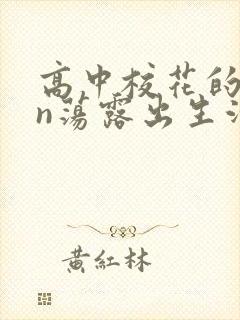 高中校花的
n荡露出生活
黄红林